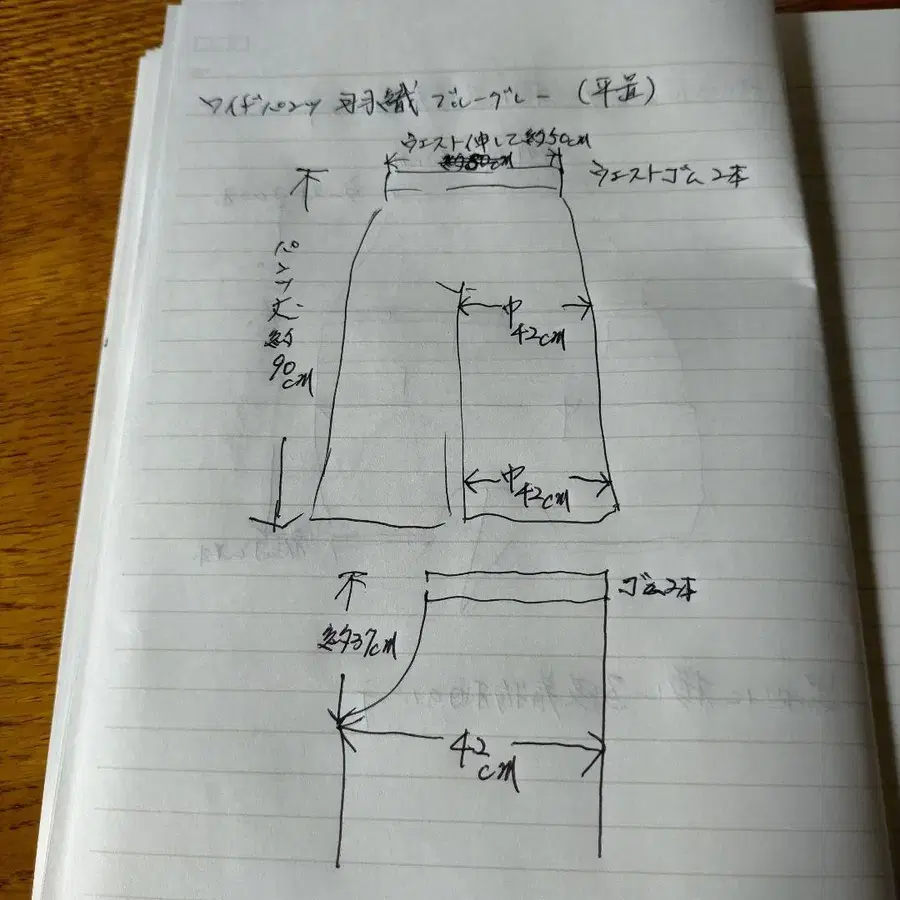 ワイドパンツ 羽織 ブルーグレー (平置)
ウエスト伸して約50cm
ウエストゴム2本
パンツ丈約90cm
巾42cm
巾42cm
ゴム2本
約37cm
42cm